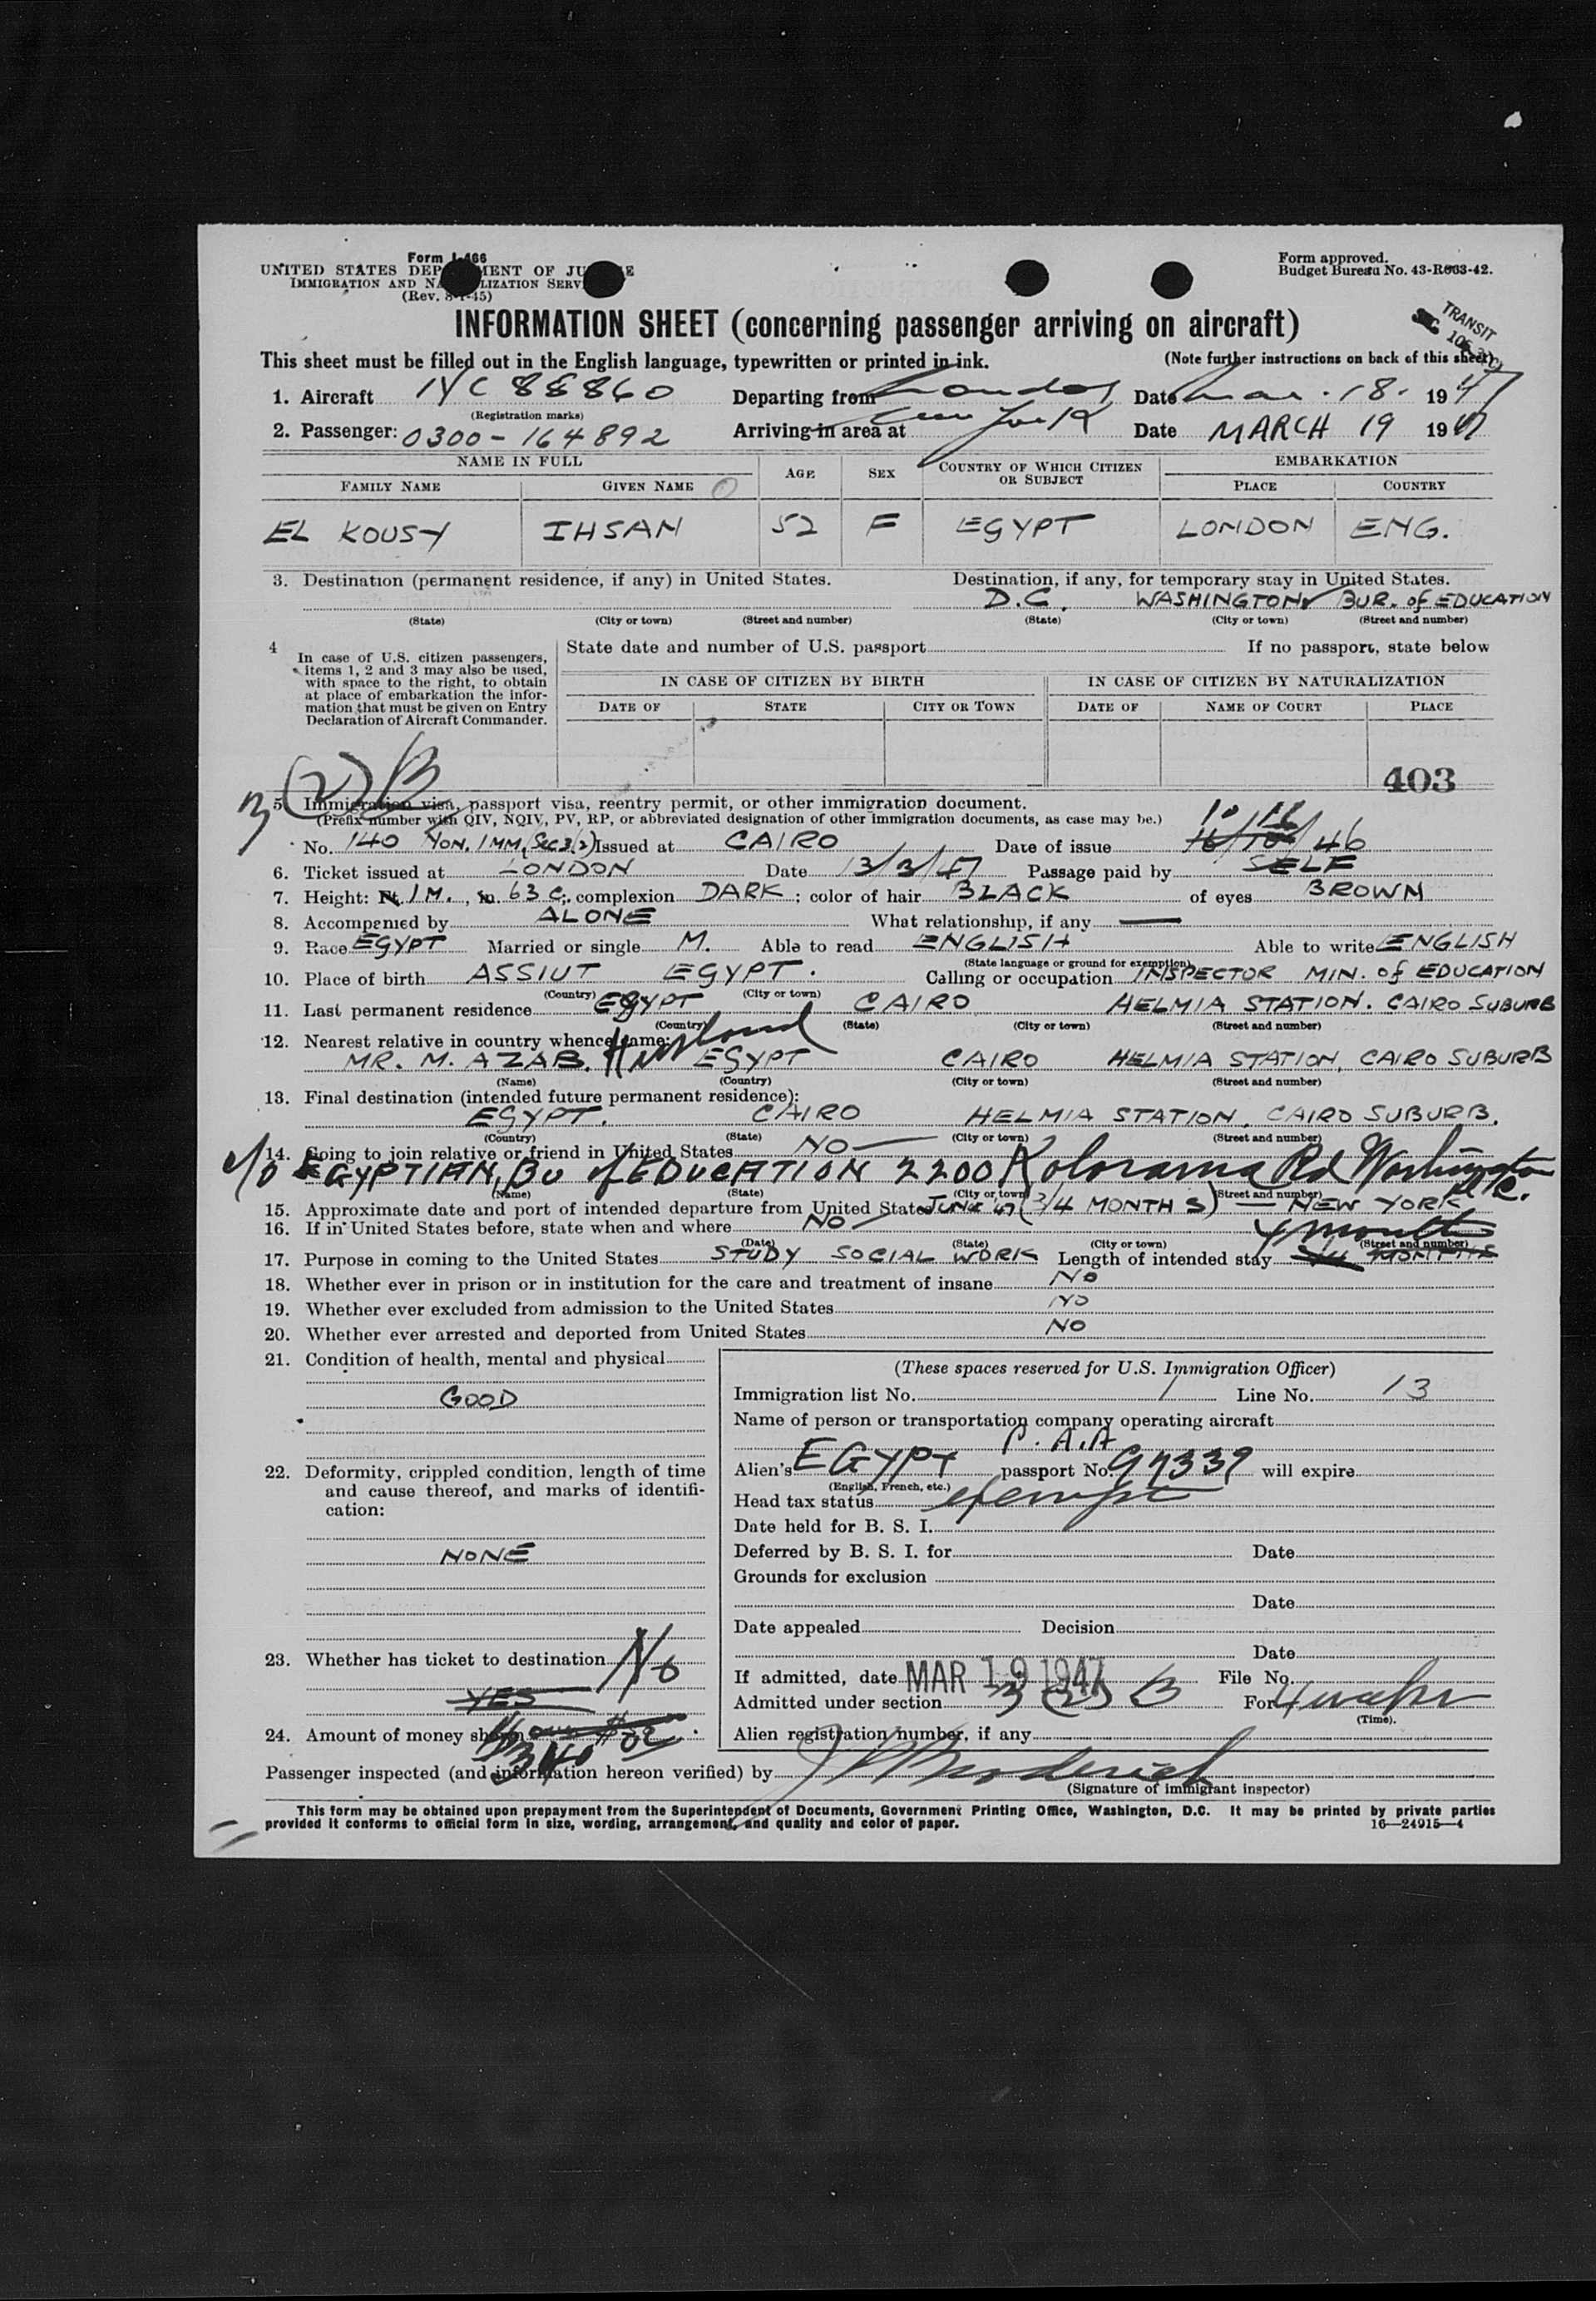 Form I-466
UNITED STATES DEPARTMENT OF JUSTICE
IMMIGRATION AND NATURALIZATION SERVICE
(Rev. 8-1-45)
Form approved.
Budget Bureau No. 43-R063-42.
INFORMATION SHEET (concerning passenger arriving on aircraft)
TRANSIT
This sheet must be filled out in the English language, typewritten or printed in ink. (Note further instructions on back of this sheet)
1. Aircraft NC 88860 Departing from London Date Mar. 18. 1947
(Registration marks)
2. Passenger: 0300-164892 Arriving in area at New York Date MARCH 19 1947
NAME IN FULL AGE SEX COUNTRY OF WHICH CITIZEN OR SUBJECT EMBARKATION
FAMILY NAME GIVEN NAME PLACE COUNTRY
EL KOUSY IHSAN 52 F EGYPT LONDON ENG.
3. Destination (permanent residence, if any) in United States. Destination, if any, for temporary stay in United States.
D.C. WASHINGTON BUR. of EDUCATION
(State) (City or town) (Street and number) (State) (City or town) (Street and number)
4 In case of U.S. citizen passengers, items 1, 2 and 3 may also be used, with space to the right, to obtain at place of embarkation the information that must be given on Entry Declaration of Aircraft Commander.
State date and number of U.S. passport If no passport, state below
IN CASE OF CITIZEN BY BIRTH IN CASE OF CITIZEN BY NATURALIZATION
DATE OF STATE CITY OR TOWN DATE OF NAME OF COURT PLACE
403
3 (2) B
5. Immigration visa, passport visa, reentry permit, or other immigration document.
(Prefix number with QIV, NQIV, PV, RP, or abbreviated designation of other immigration documents, as case may be.)
10 16
No. 140 NON. IMM. (Sec 3/2) Issued at CAIRO Date of issue 16/10/46
6. Ticket issued at LONDON Date 13/3/47 Passage paid by SELF
7. Height: Ft. 1 M., in. 63 C.; complexion DARK; color of hair BLACK of eyes BROWN
8. Accompanied by ALONE What relationship, if any —
9. Race EGYPT Married or single M. Able to read ENGLISH Able to write ENGLISH
(State language or ground for exemption)
10. Place of birth ASSIUT EGYPT. Calling or occupation INSPECTOR MIN. of EDUCATION
(Country) (City or town)
11. Last permanent residence EGYPT CAIRO HELMIA STATION. CAIRO SUBURB
(Country) (State) (City or town) (Street and number)
12. Nearest relative in country whence came:
MR. M. AZAB. Husband EGYPT CAIRO HELMIA STATION, CAIRO SUBURB
(Name) (Country) (City or town) (Street and number)
13. Final destination (intended future permanent residence):
EGYPT. CAIRO HELMIA STATION, CAIRO SUBURB.
(Country) (State) (City or town) (Street and number)
14. Going to join relative or friend in United States NO
c/o EGYPTIAN, BU of EDUCATION 2200 Kolorama Rd Washington D.C.
(Name) (State) (City or town) (Street and number)
15. Approximate date and port of intended departure from United States JUNE '47 (3/4 MONTHS) — NEW YORK
16. If in United States before, state when and where NO
(Date) (State) (City or town) (Street and number)
4 months
17. Purpose in coming to the United States STUDY SOCIAL WORK Length of intended stay 3/4 MONTHS
18. Whether ever in prison or in institution for the care and treatment of insane NO
19. Whether ever excluded from admission to the United States NO
20. Whether ever arrested and deported from United States NO
21. Condition of health, mental and physical
GOOD
22. Deformity, crippled condition, length of time and cause thereof, and marks of identification:
NONE
23. Whether has ticket to destination No
YES
24. Amount of money shown
340
(These spaces reserved for U.S. Immigration Officer)
Immigration list No. 1 Line No. 13
Name of person or transportation company operating aircraft
P.A.A
Alien's EGYPT passport No. 97339 will expire
(English, French, etc.)
Head tax status exempt
Date held for B. S. I.
Deferred by B. S. I. for Date
Grounds for exclusion
Date
Date appealed Decision
Date
If admitted, date MAR 19 1947 File No.
Admitted under section 3 (2) B For 4 months
(Time).
Alien registration number, if any
Passenger inspected (and information hereon verified) by
(Signature of immigrant inspector)
This form may be obtained upon prepayment from the Superintendent of Documents, Government Printing Office, Washington, D.C. It may be printed by private parties
provided it conforms to official form in size, wording, arrangement, and quality and color of paper. 16—24915—4